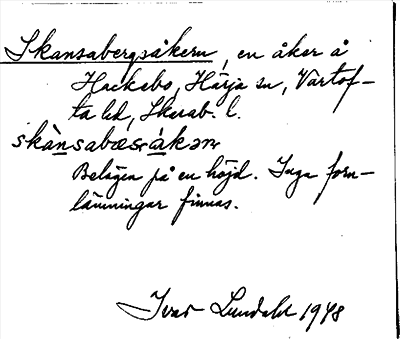 Skansabergsåkern, en åker å
Hackebo, Härja sn, Vartof-
ta hd, Skarab. l.
skànsabæsːákən
Belägen på en höjd. Inga forn-
lämningar finnas.
Ivar Lundahl 1948